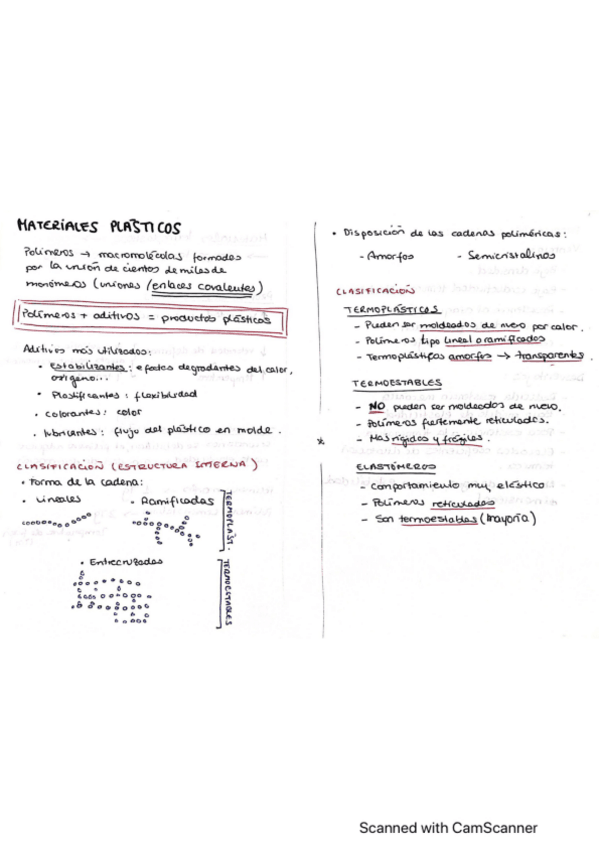 MATERIALES PLÁSTICOS
Polímeros → macromoléculas formadas
por la unión de cientos de miles de
monómeros (uniones / enlaces covalentes)
Polímeros + aditivos = productos plásticos
Aditivos más utilizados:
• Estabilizantes: efectos degradantes del calor,
oxígeno...
• Plastificantes: flexibilidad
• Colorantes: color
• lubricantes: flujo del plástico en molde.
CLASIFICACIÓN (ESTRUCTURA INTERNA)
• Forma de la cadena:
• Lineales
• Ramificadas
TERMOPLÁST.
• Entrecruzadas
TERMOESTABLES
• Disposición de las cadenas poliméricas:
- Amorfos
- Semicristalinos
CLASIFICACIÓN
TERMOPLÁSTICOS
- Pueden ser moldeados de nuevo por calor.
- Polímeros tipo lineal o ramificados
- Termoplásticos amorfos → transparentes.
TERMOESTABLES
- NO pueden ser moldeados de nuevo.
- Polímeros fuertemente reticulados.
* - Mas rígidos y frágiles.
ELASTÓMEROS
- Comportamiento muy elástico
- Polímeros reticulados
- Son termoestables (mayoría)
Scanned with CamScanner